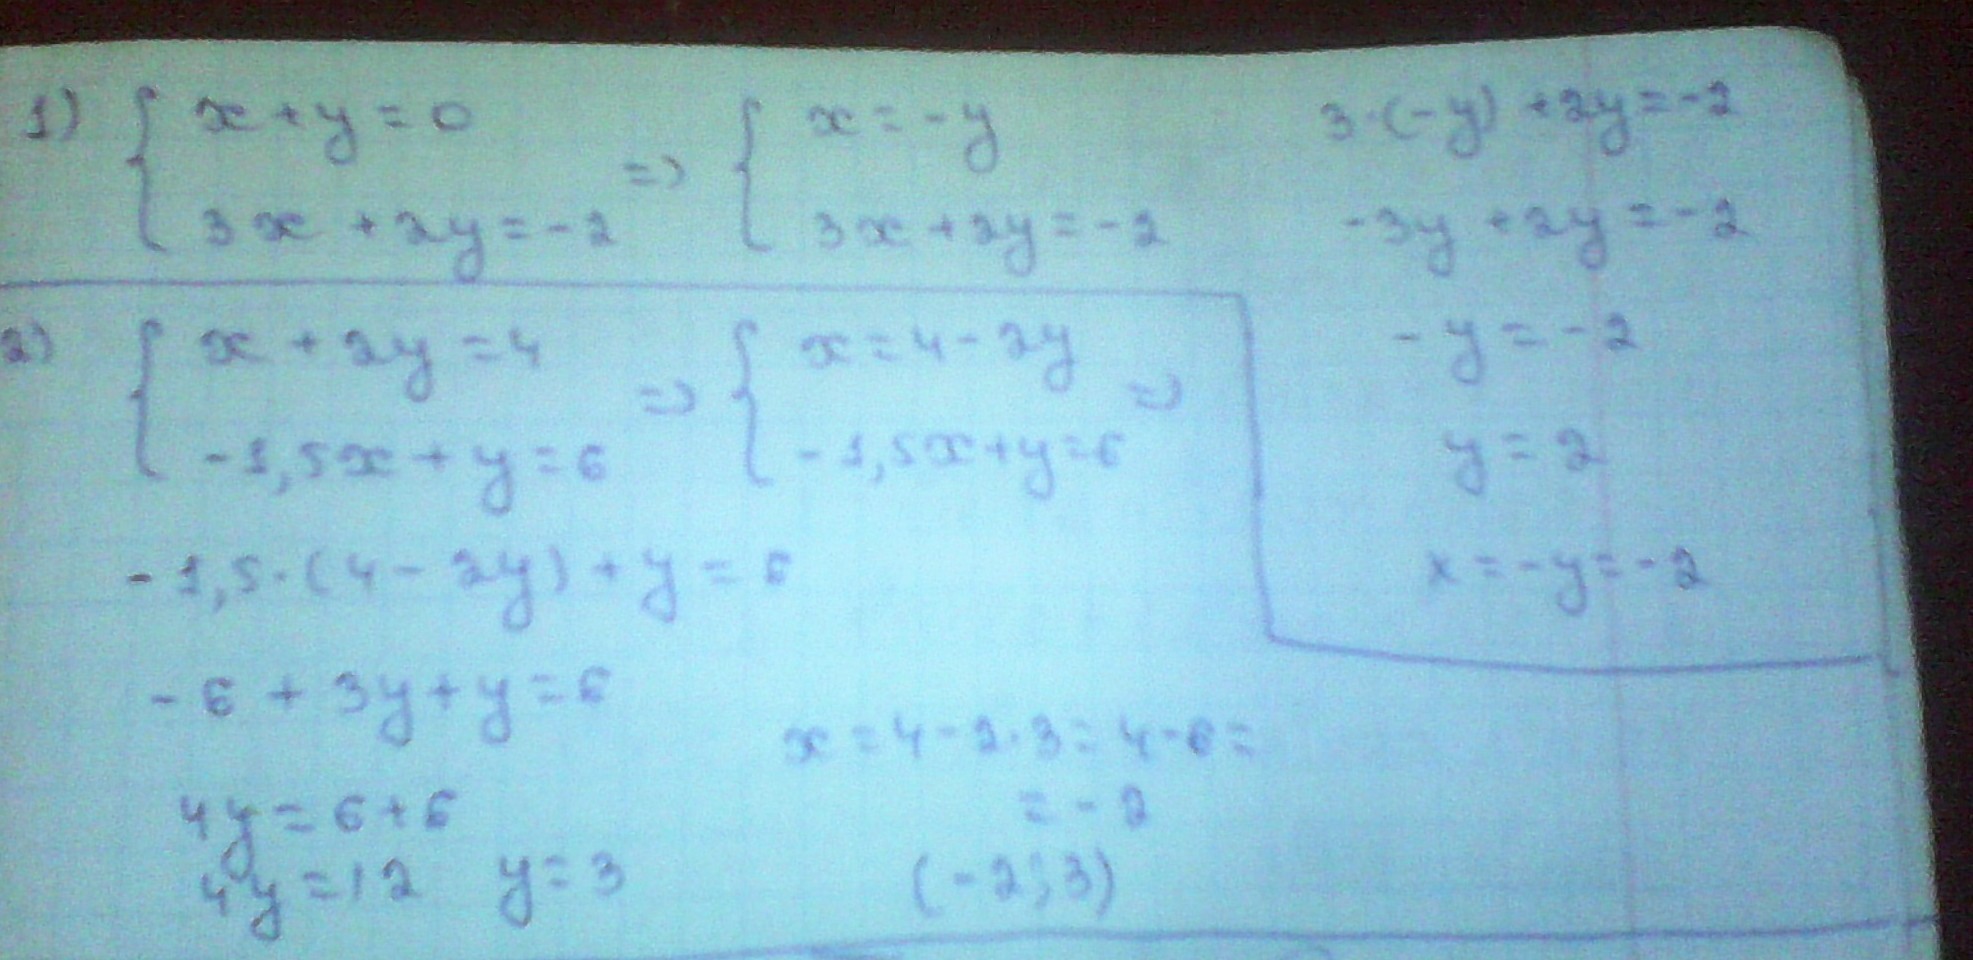 1) { x + y = 0
3x + 2y = -2
=> { x = -y
3x + 2y = -2
3·(-y) + 2y = -2
-3y + 2y = -2
-y = -2
y = 2
x = -y = -2
2) { x + 2y = 4
-1,5x + y = 6
=> { x = 4 - 2y
-1,5x + y = 6
=>
-1,5·(4 - 2y) + y = 6
-6 + 3y + y = 6
4y = 6 + 6
4y = 12 y = 3
x = 4 - 2·3 = 4 - 6 =
= -2
(-2; 3)